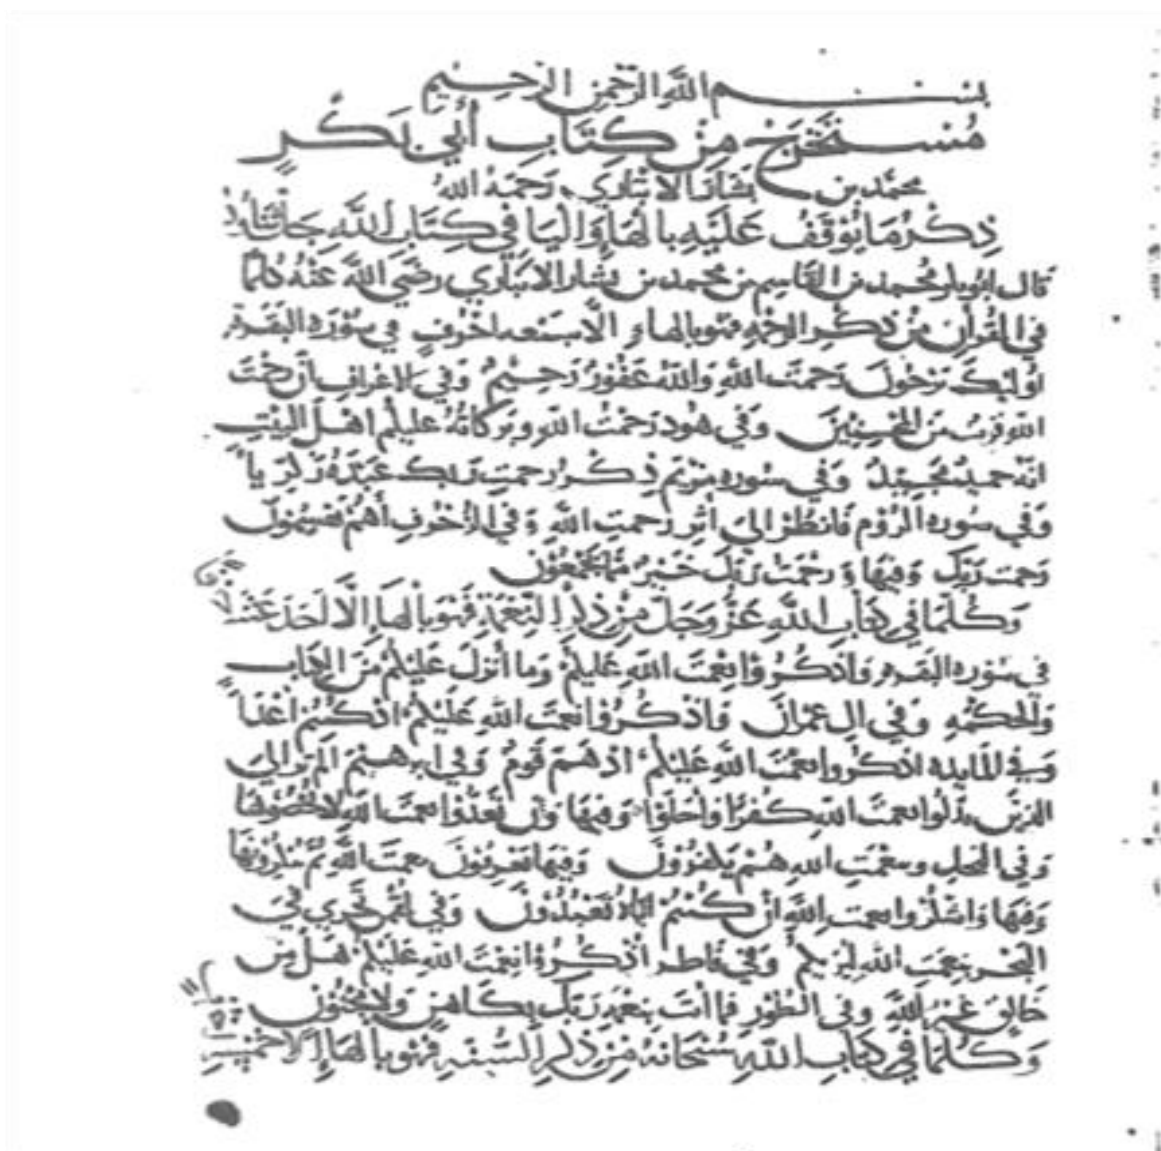 بسم الله الرحمن الرحيم
مستخرج من كتاب أبي بكر
محمد بن بشار الانباري رحمه الله
ذكر ما يوقف عليه بالهاء واليا في كتاب الله جل ثناؤه
قال ابو بكر محمد بن القاسم بن محمد بن بشار الانباري رضي الله عنه كلما
في القرآن من ذكر الرحمه فهو بالهاء الا سبعه احرف في سوره البقره
اوليك يرجون رحمت الله والله غفور رحيم وفي الاعراف ان رحمت
الله قريب من المحسنين وفي هود رحمت الله وبركاته عليكم اهل البيت
انه حميد مجيد وفي سوره مريم ذكر رحمت ربك عبده زكريا
وفي سوره الروم فانظر الى أثر رحمت الله وفي الزخرف أهم يقسمون
رحمت ربك وفيها ورحمت ربك خير مما يجمعون
وكلما في كتاب الله عز وجل من ذكر النعمة فهو بالهاء إلا احد عشر
في سوره البقره واذكروا نعمت الله عليكم وما أنزل عليكم من الكتاب
والحكمه وفي ال عمران واذكروا نعمت الله عليكم اذ كنتم أعداً
وفي المايده اذكروا نعمت الله عليكم اذ هم قوم وفي ابرهيم الم تر الى
الذين بدلوا نعمت الله كفرا واحلوا وفيها وان تعدوا نعمت الله لا تحصوها
وفي النحل وبنعمت الله هم يكفرون وفيها يعرفون نعمت الله ثم ينكرونها
وفيها واشكروا نعمت الله ان كنتم اياه تعبدون وفي لقمن تجري في
البحر بنعمت الله ليريكم وفي فاطر اذكروا نعمت الله عليكم هل من
خالق غير الله وفي الطور فما أنت بنعمه ربك بكاهن ولا مجنون
وكلما في كتاب الله سبحانه من ذكر السنه فهو بالهاء إلا خمسه